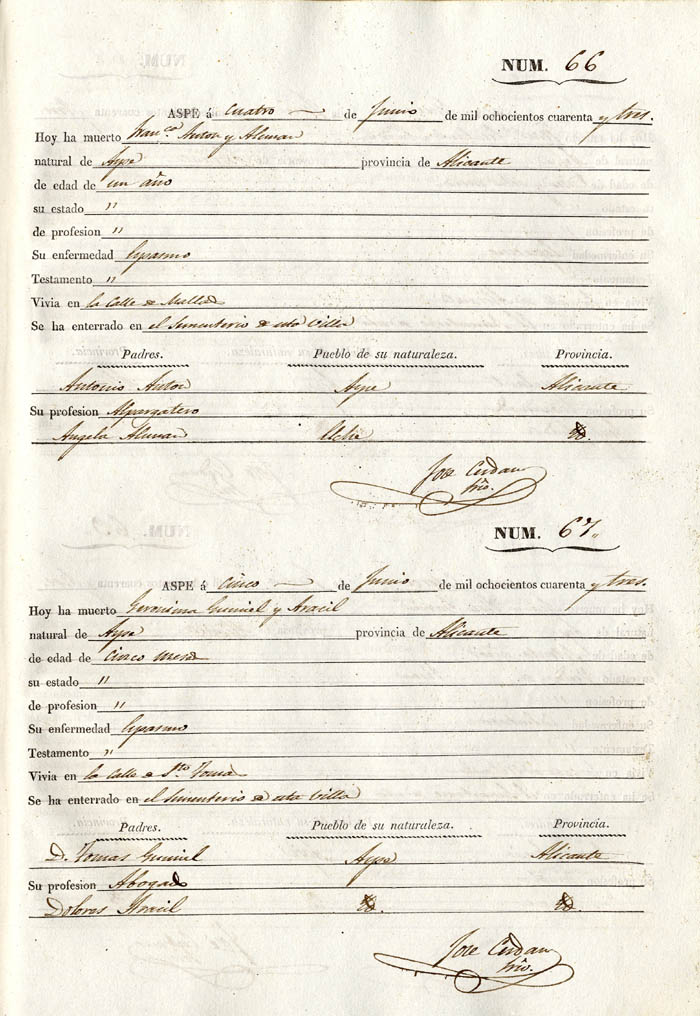 NUM. 66
ASPE á cuatro de Junio de mil ochocientos cuarenta y tres.
Hoy ha muerto Franco. Anton y Aleman
natural de Aspe provincia de Alicante
de edad de un año
su estado "
de profesion "
Su enfermedad Espasmo
Testamento "
Vivia en la Calle de
Se ha enterrado en el Sementerio de esta Villa
Padres. Pueblo de su naturaleza. Provincia.
Antonio Anton Aspe Alicante
Su profesion Alpargatero
Angela Aleman Elche Yd.
Jose Cerdan
Srio.
NUM. 67.
ASPE á cinco de Junio de mil ochocientos cuarenta y tres.
Hoy ha muerto Geronima Gumiel y Aracil
natural de Aspe provincia de Alicante
de edad de cinco meses
su estado "
de profesion "
Su enfermedad Espasmo
Testamento "
Vivia en la Calle de Sto. Tomas
Se ha enterrado en el Sementerio de esta Villa
Padres. Pueblo de su naturaleza. Provincia.
D. Tomas Gumiel Aspe Alicante
Su profesion Abogado
Dolores Aracil Yd. Yd.
Jose Cerdan
Srio.